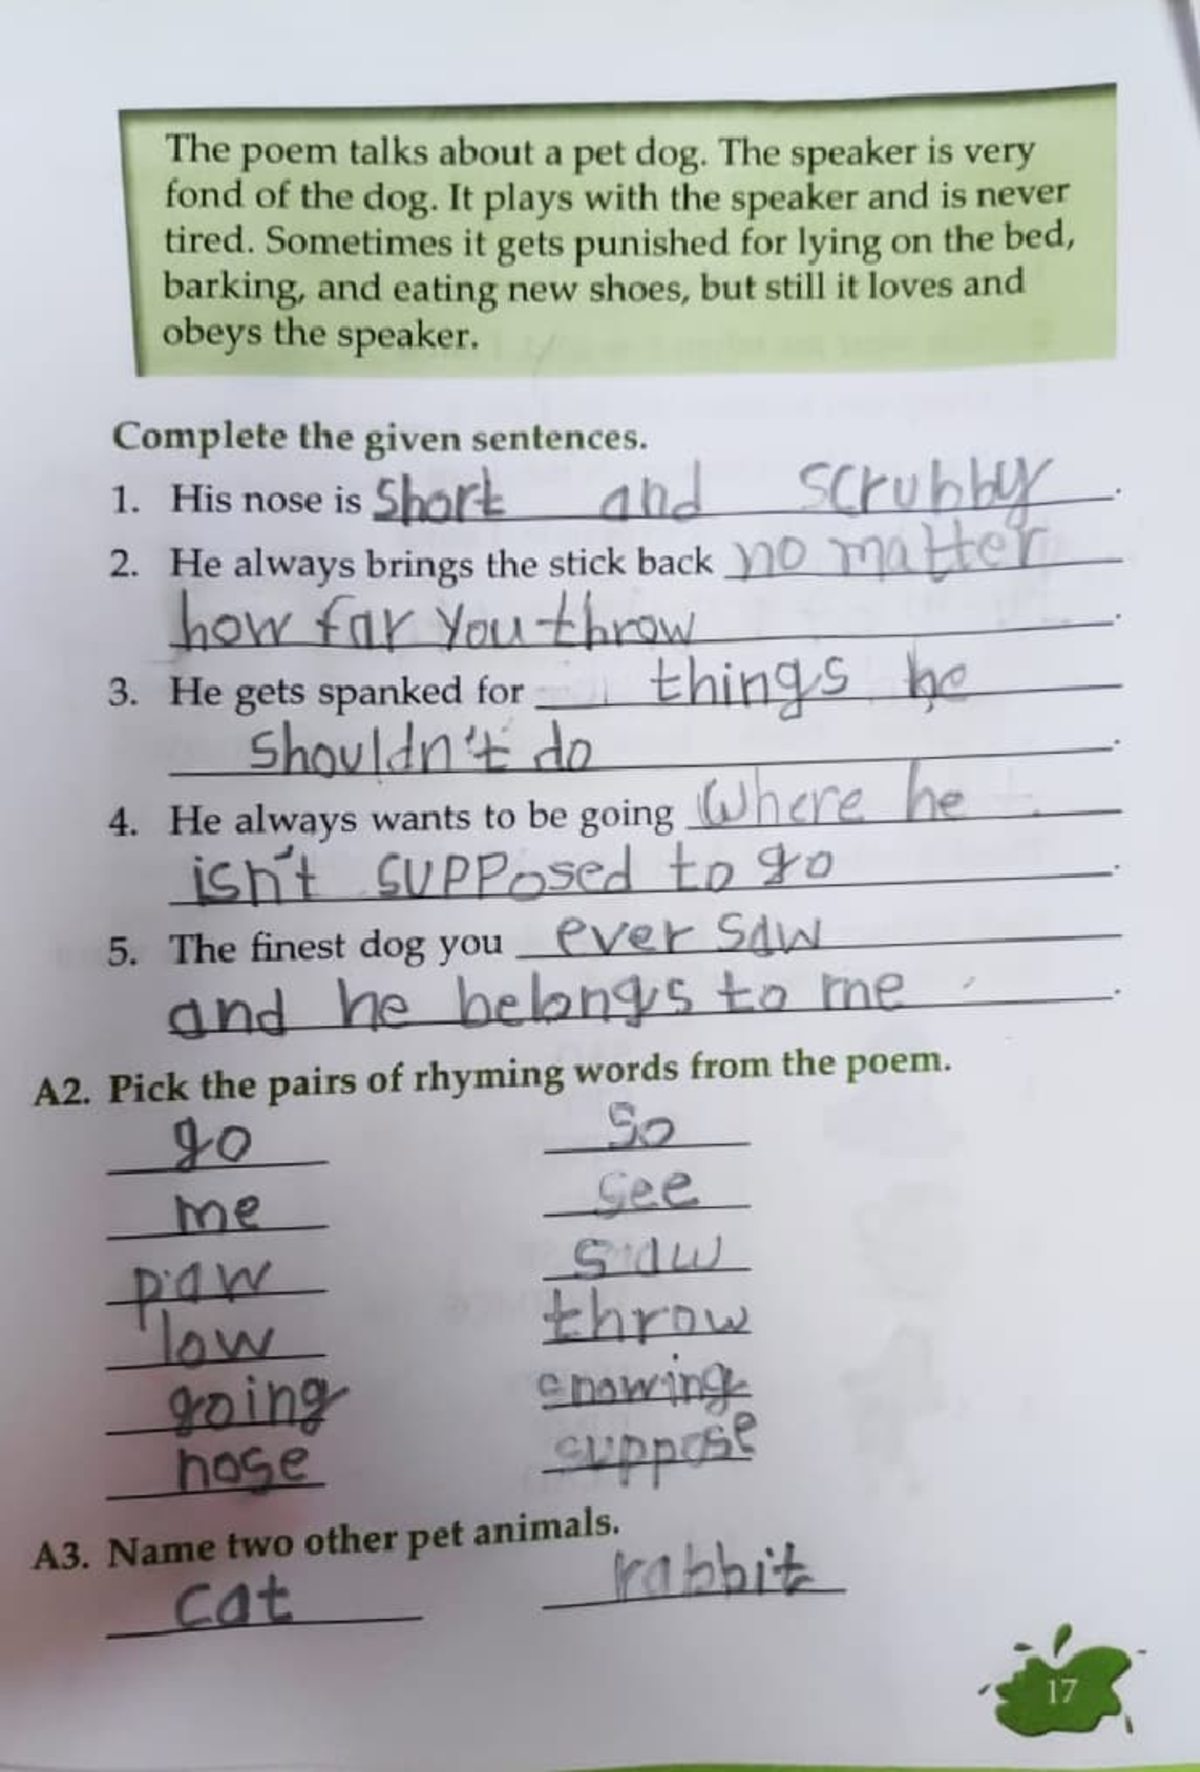 The poem talks about a pet dog. The speaker is very
fond of the dog. It plays with the speaker and is never
tired. Sometimes it gets punished for lying on the bed,
barking, and eating new shoes, but still it loves and
obeys the speaker.
Complete the given sentences.
1. His nose is short and scrubby.
2. He always brings the stick back no matter
how far you throw.
3. He gets spanked for things he
shouldn't do.
4. He always wants to be going where he
isn't supposed to go.
5. The finest dog you ever saw
and he belongs to me.
A2. Pick the pairs of rhyming words from the poem.
go so
me see
paw saw
low throw
going snowing
nose suppose
A3. Name two other pet animals.
cat rabbit
17